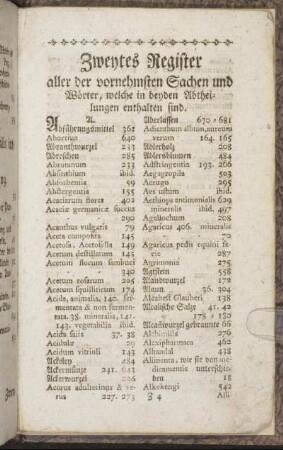 Zweytes Register
aller der vornehmsten Sachen und
Wörter, welche in beyden Abthei-
lungen enthalten sind.
A.
Abführungsmittel 361
Abortus 640
Abranthwurzel 233
Abreschen 285
Abrotanum 233
Absinthium ibid.
Abdothemia 59
Absbergentia 155
Acaciarum flores 402
Acaciæ germanicæ succus
290
Acanthus vulgaris 79
Aceta composita 145
Acetosa. Acetosella 149
Acetum destillatum 145
Acetum florum sambuci
340
Acetum rosarum 205
Acetum squilliticum 174
Acida, animalia, 140. fer-
mentata & non fermen-
tata. 38. mineralia, 141.
143. vegetabilia ibid.
Acida salia 37. 38
Acidulæ 29
Acidum vitrioli 143
Ackeley 484
Ackermünze 241. 643
Ackerwurzel 226
Acorus adulterinus & ve-
rus 227. 273
Aderlassen 670 - 681
Adianthum album, aureum
verum 164. 165
Adlerholz 208
Adlersblumen 484
Adstringentia 193. 266
Aegagropila 503
Aerugo 295
Aes ustum ibid.
Aethiops antimonialis 620
mineralis ibid. 497
Agallochum 208
Agaricus 406. mineralis
70
Agaricus pedis equini fa-
cie 287
Agrimonia 275
Agtstein 558
Alandwurzel 172
Alaun 36. 304
Alcahest Glauberi 138
Alcalische Salze 41. 42
178 - 180
Alcañawurzel gebrannte 66
Alchimilla 276
Alexipharmca 462
Alhandal 438
Alimenta, wie sie von me-
dicamentis unterschie-
den 18
Alkekengi 542
3 4
Alli